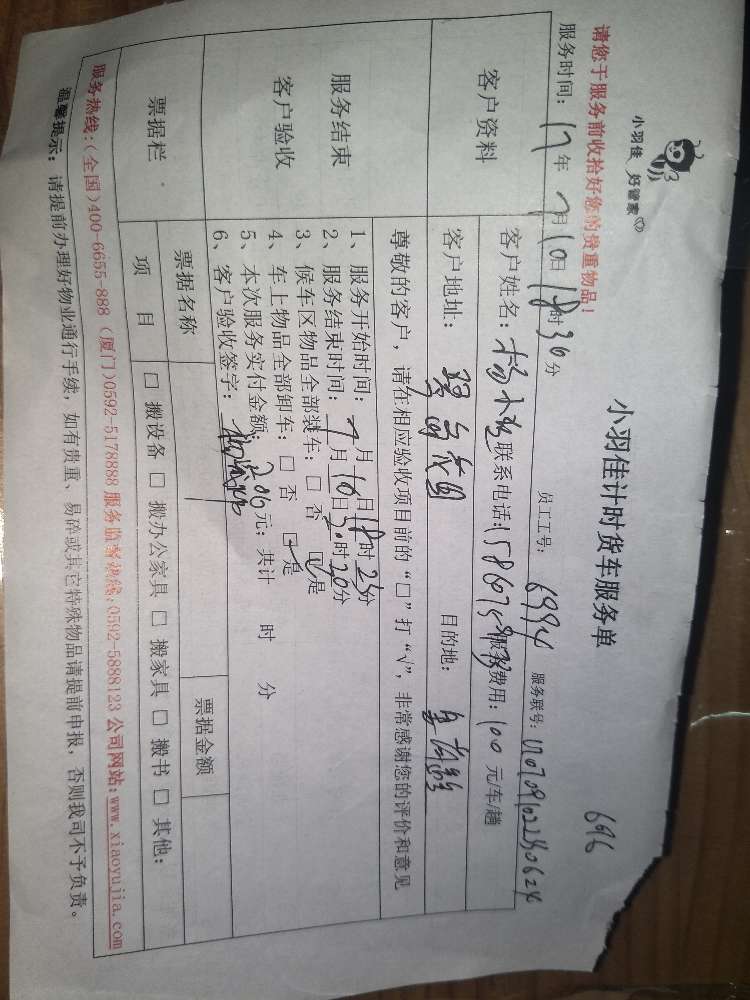 小羽佳 好管家
696
小羽佳计时货车服务单
请您于服务前收拾好您的贵重物品!
员工工号: 6994 服务联号:
服务时间: 17年 7月 10日 18时 30分
客户资料
客户姓名: 联系电话: 服务费用: 100 元车/趟
客户地址: 目的地:
尊敬的客户，请在相应验收项目前的“□”打“√”，非常感谢您的评价和意见
服务结束
客户验收
1、服务开始时间: 7月 10日 18时 25分
2、服务结束时间: 7月 10日 20时 20分
3、候车区物品全部装车: □ 否 ☑ 是
4、车上物品全部卸车: □ 否 ☑ 是
5、本次服务实付金额: 元; 共计 时 分
6、客户验收签字:
票据栏
票据名称 票据金额
项 目 □ 搬设备 □ 搬办公家具 □ 搬家具 □ 搬书 □ 其他:
服务热线:(全国)400-6655-888 (厦门)0592-5178888 服务监督热线:0592-5888123 公司网站:www.xiaoyujia.com
温馨提示: 请提前办理好物业通行手续，如有贵重、易碎或其它特殊物品请提前申报，否则我司不予负责。